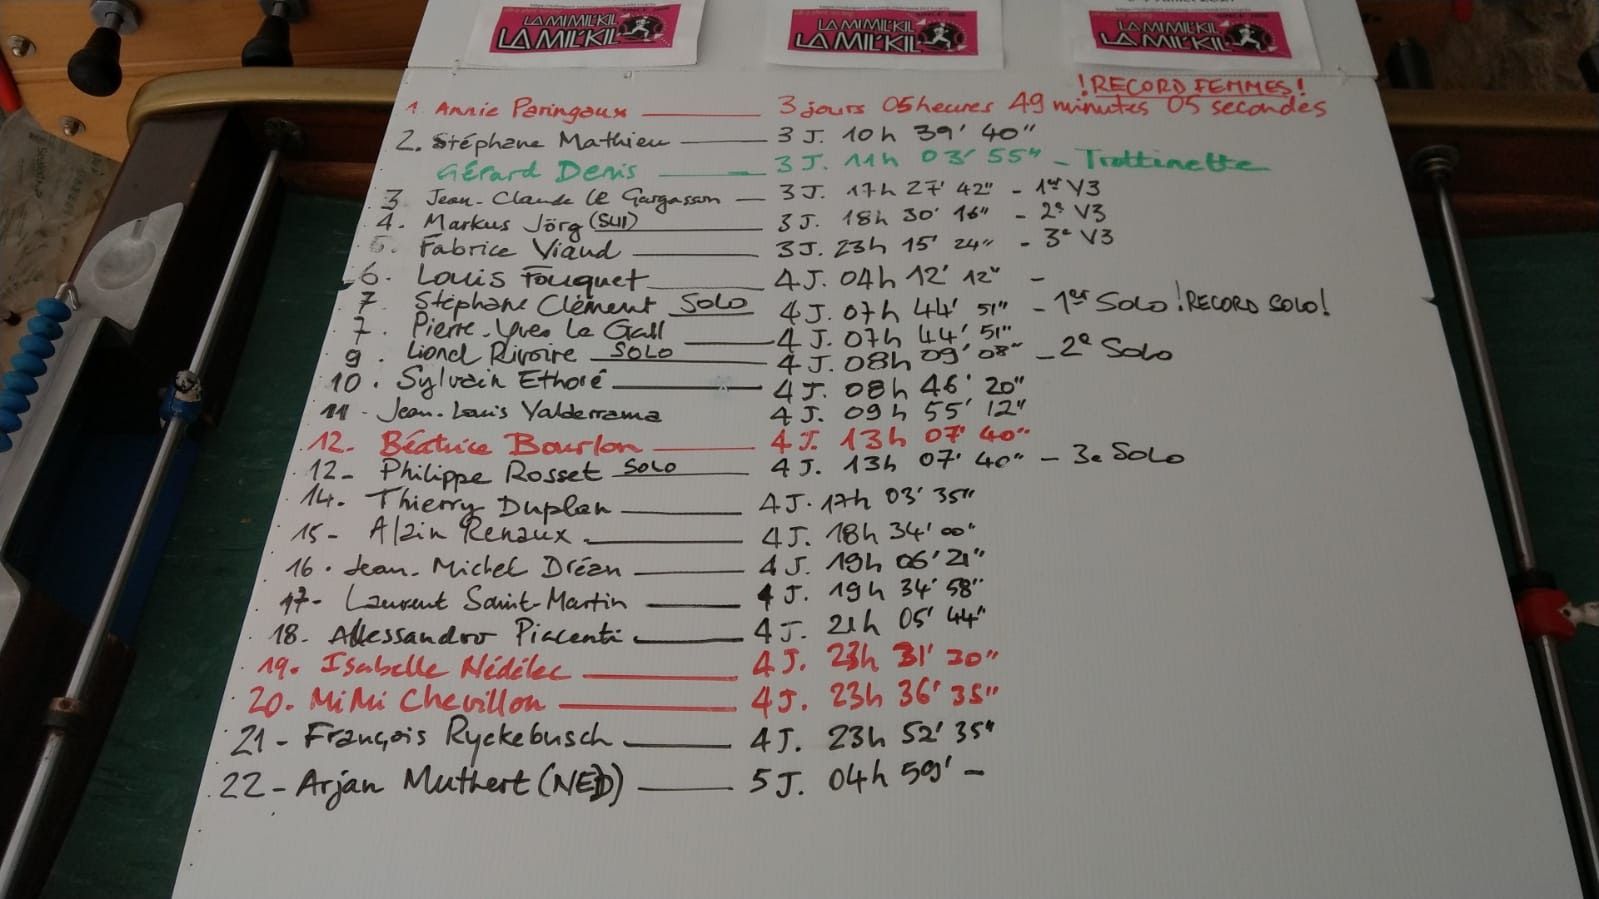 LA MIMIL'KIL
LA MIL'KIL
LA MIMIL'KIL
LA MIL'KIL
LA MIMIL'KIL
LA MIL'KIL
!RECORD FEMMES!
1. Annie Paringaux 3 jours 05 heures 49 minutes 05 secondes
2. Stéphane Mathieu 3 J. 10h 39' 40"
Gérard Denis 3 J. 11h 03' 55" - Trottinette
3. Jean-Claude Le Gargasson 3 J. 17h 27' 42" - 1er V3
4. Markus Jörg (SUI) 3 J. 18h 30' 16" - 2e V3
5. Fabrice Viaud 3 J. 23h 15' 24" - 3e V3
6. Louis Fouquet 4 J. 04h 12' 12" -
7 Stéphane Clément SOLO 4 J. 07h 44' 51" - 1er Solo !RECORD SOLO!
7. Pierre-Yves Le Gall 4 J. 07h 44' 51"
9. Lionel Rivoire SOLO 4 J. 08h 09' 08" - 2e Solo
10. Sylvain Ethoré 4 J. 08h 46' 20"
11 - Jean-Louis Valderrama 4 J. 09h 55' 12"
12. Béatrice Bourlon 4 J. 13h 07' 40"
12- Philippe Rosset SOLO 4 J. 13h 07' 40" - 3e Solo
14. Thierry Duplan 4 J. 17h 03' 35"
15- Alain Renaux 4 J. 18h 34' 00"
16. Jean-Michel Dréan 4 J. 19h 06' 21"
17- Laurent Saint-Martin 4 J. 19h 34' 58"
18. Allessandro Piacenti 4 J. 21h 05' 44"
19. Isabelle Nédélec 4 J. 23h 31' 30"
20. MiMi Chevillon 4 J. 23h 36' 35"
21- François Ryckebusch 4 J. 23h 52' 35"
22- Arjan Muthert (NED) 5 J. 04h 59' -